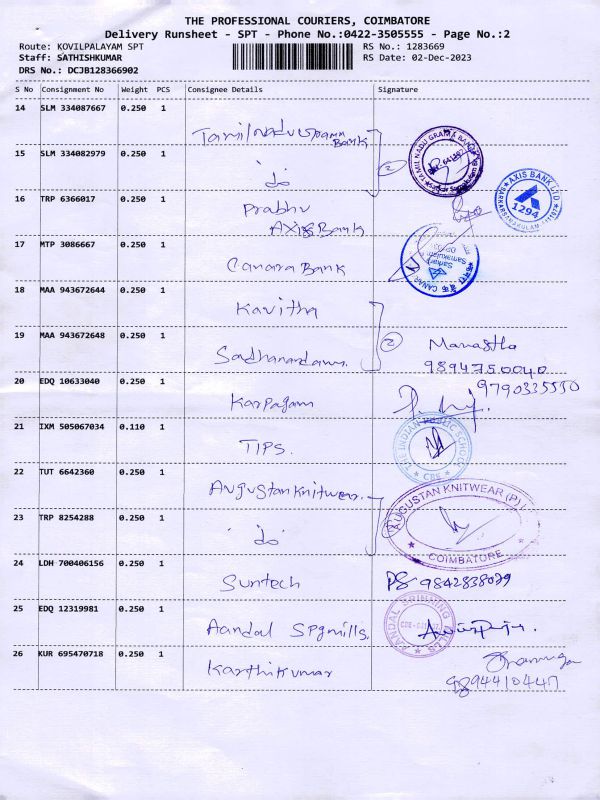 THE PROFESSIONAL COURIERS, COIMBATORE
Delivery Runsheet - SPT - Phone No.:0422-3505555 - Page No.:2
Route: KOVILPALAYAM SPT
RS No.: 1283669
Staff: SATHISHKUMAR
RS Date: 02-Dec-2023
DRS No.: DCJB128366902
S No Consignment No Weight PCS Consignee Details Signature
14 SLM 334087667 0.250 1
Tamilnadu Bank
15 SLM 334082979 0.250 1
do
2
TAMIL NADU GRAMA BANK
16 TRP 6366017 0.250 1
Prabhu
Axis Bank
AXIS BANK LTD.
1294
17 MTP 3086667 0.250 1
Canara Bank
18 MAA 943672644 0.250 1
Kavitha
19 MAA 943672648 0.250 1
2
9894750040
20 EDQ 10633040 0.250 1
Karpagam
9790335550
21 IXM 505067034 0.110 1
TIPS.
THE INDIAN PUBLIC SCHOOL
CBE
22 TUT 6642360 0.250 1
Augustan Knitwear.
AUGUSTAN KNITWEAR (P) L
COIMBATORE
23 TRP 8254288 0.250 1
do
24 LDH 700406156 0.250 1
Suntech
PS 9842838029
25 EDQ 12319981 0.250 1
Aandal Spgmills.
AANDAL SPINNING MILLS
26 KUR 695470718 0.250 1
Karthikumar
9894410447